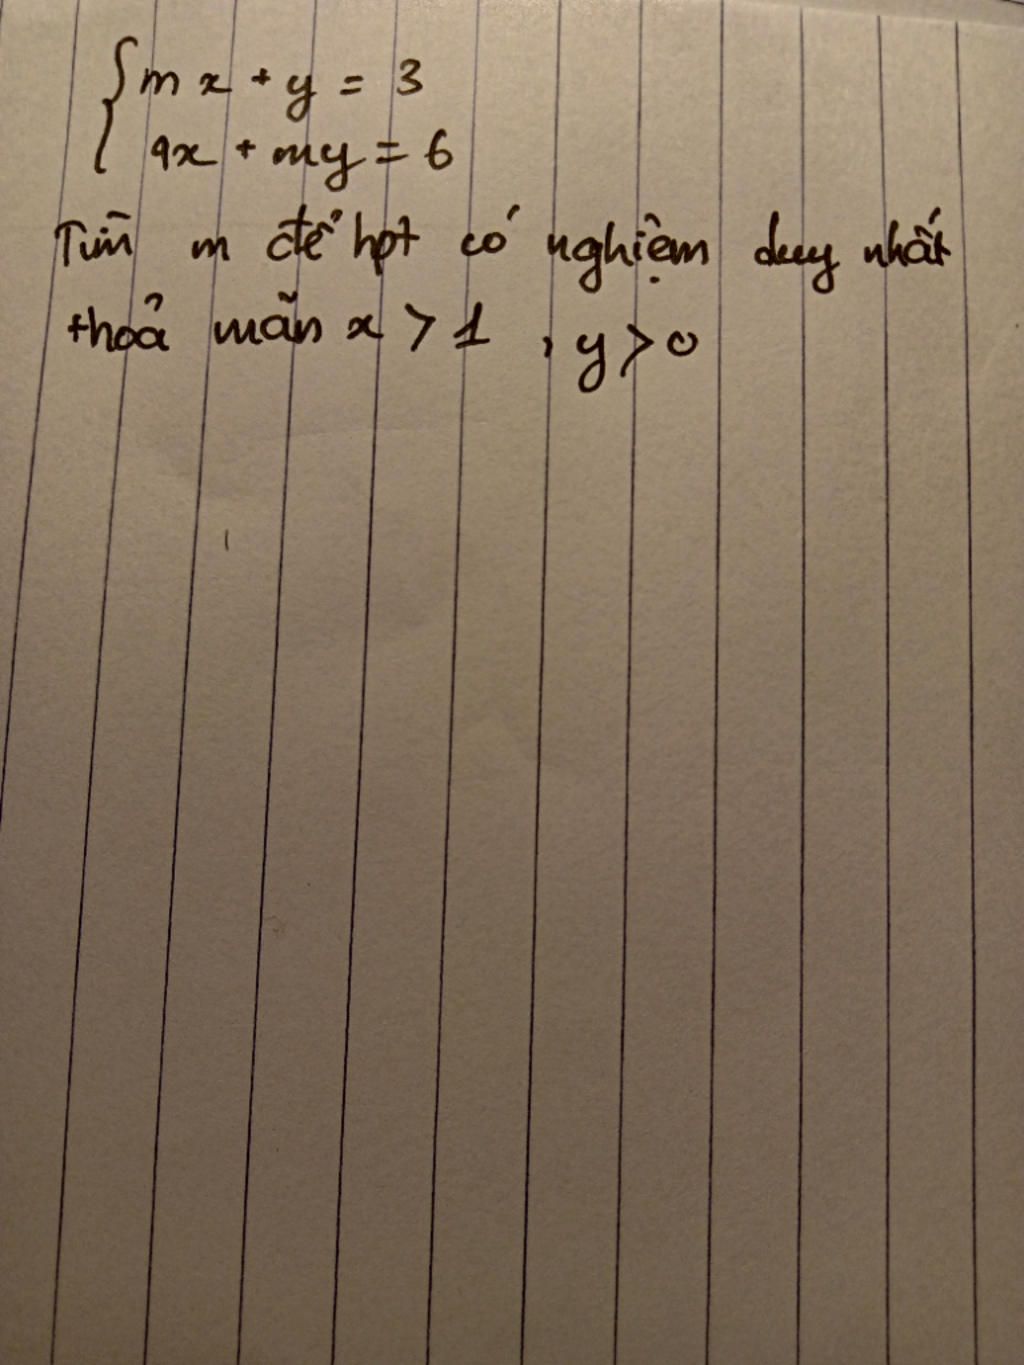 {mx + y = 3
9x + my = 6
Tìm m để hpt có nghiệm duy nhất
thoả mãn x > 1 , y > 0